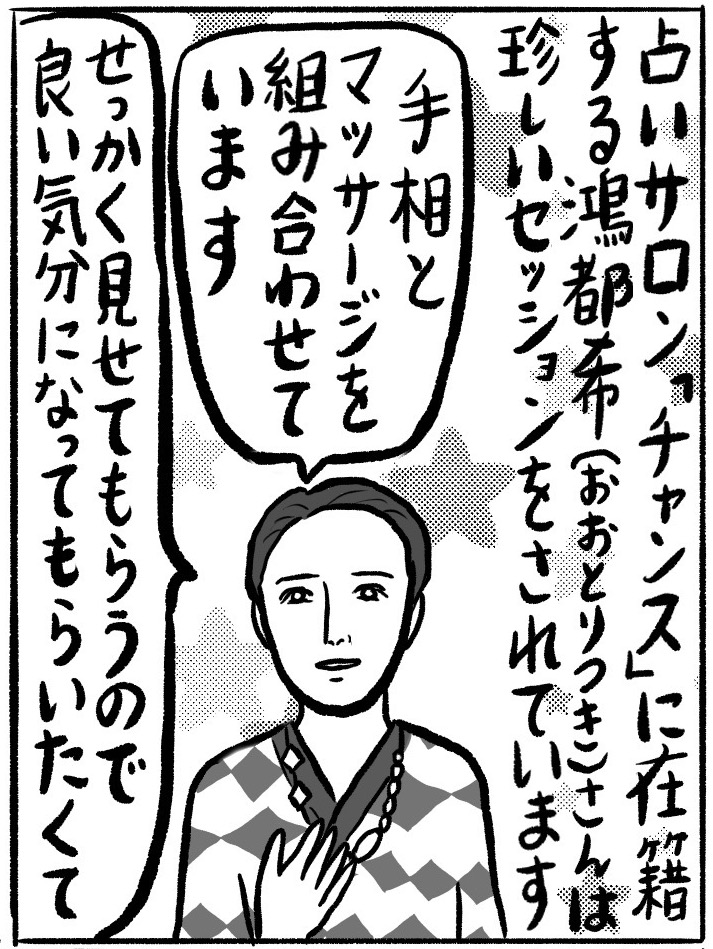 占いサロン「チャンス」に在籍
する鴻都希(おおとりつき)さんは
珍しいセッションをされています
手相と
マッサージを
組み合わせて
います
せっかく見せてもらうので
良い気分になってもらいたくて